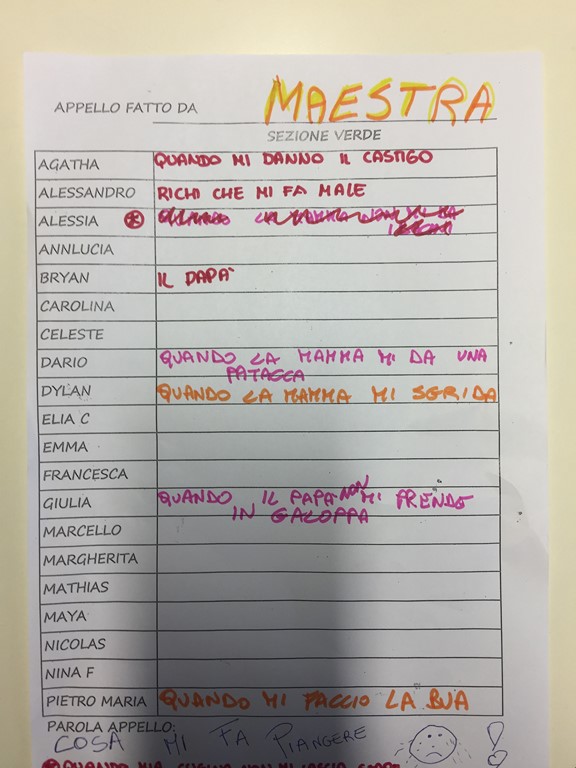 APPELLO FATTO DA MAESTRA
SEZIONE VERDE
AGATHA QUANDO MI DANNO IL CASTIGO
ALESSANDRO RICHI CHE MI FA MALE
ALESSIA
ANNLUCIA
BRYAN IL DAPA'
CAROLINA
CELESTE
DARIO QUANDO LA MAMMA MI DA UNA
PATACCA
DYLAN QUANDO LA MAMMA MI SGRIDA
ELIA C
EMMA
FRANCESCA
GIULIA QUANDO IL PAPA' NON MI PRENDE
IN GALOPPA
MARCELLO
MARGHERITA
MATHIAS
MAYA
NICOLAS
NINA F
PIETRO MARIA QUANDO MI FACCIO LA BUA
PAROLA APPELLO:
COSA MI FA PIANGERE !
QUANDO MIA